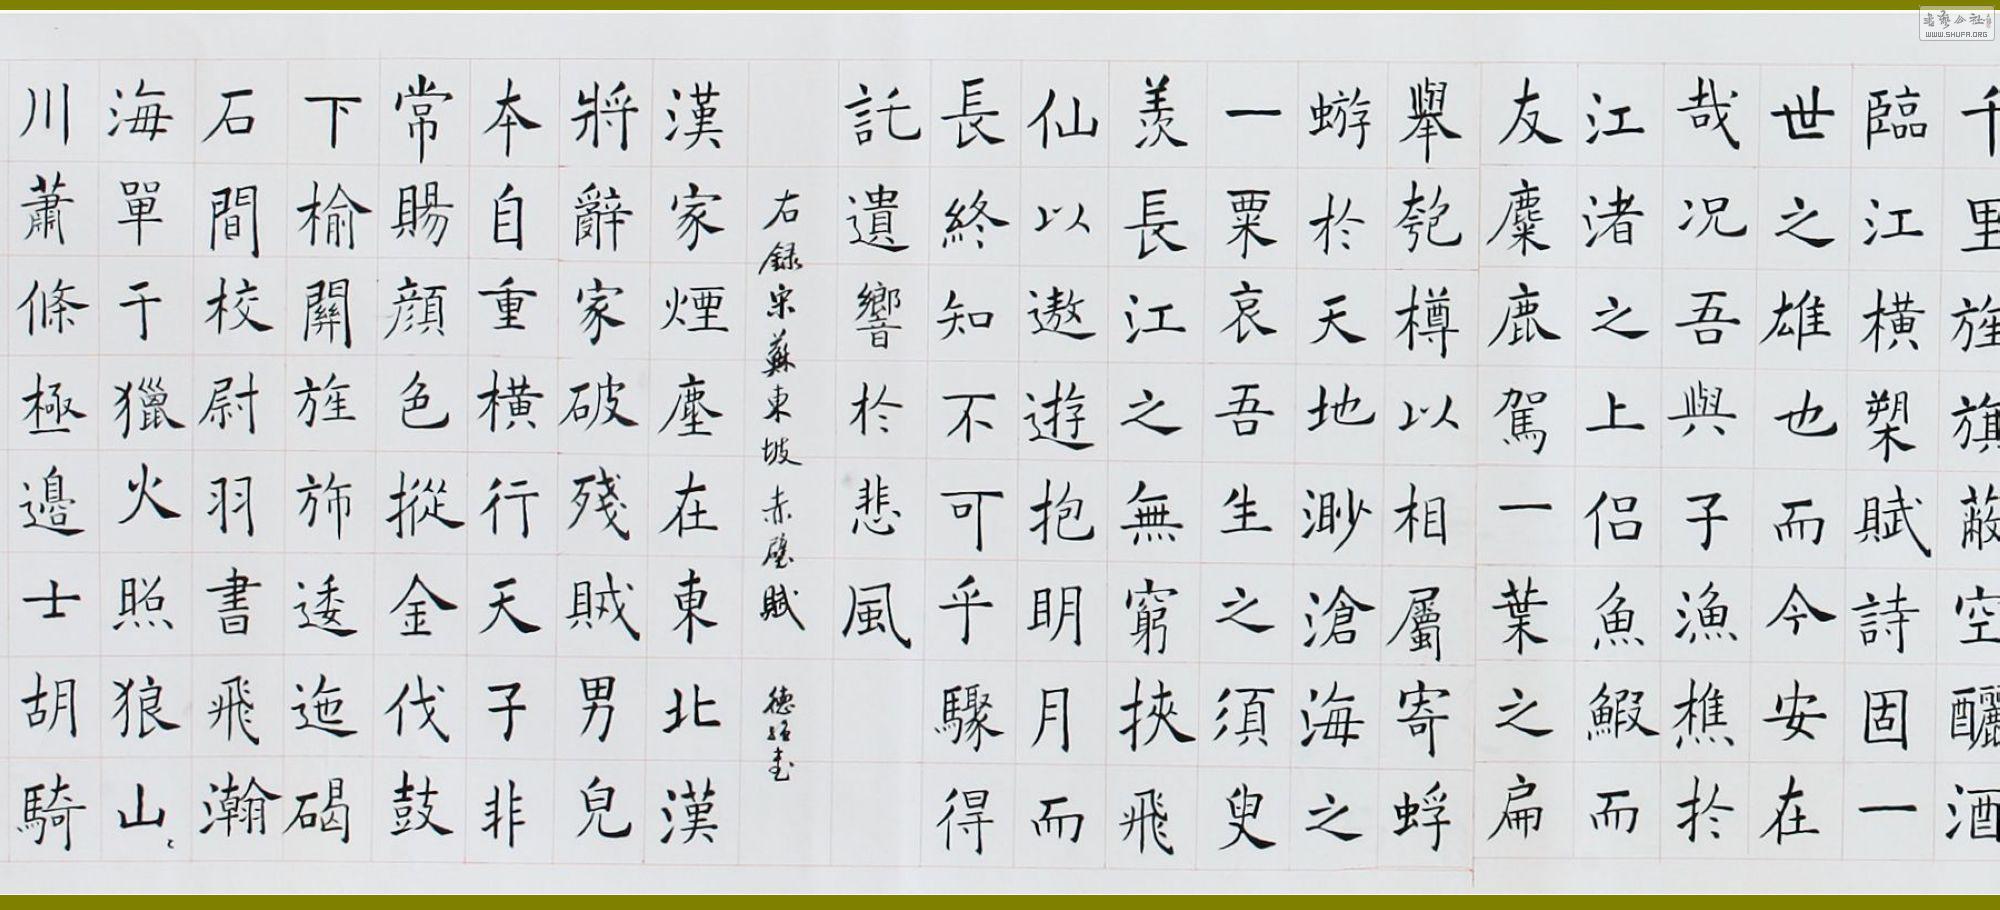 千里旌旗蔽空釃酒
臨江横槊賦詩固一
世之雄也而今安在
哉况吾與子漁樵於
江渚之上侣魚鰕而
友麋鹿駕一葉之扁
舉匏樽以相屬寄蜉
蝣於天地渺滄海之
一粟哀吾生之須臾
羨長江之無窮挾飛
仙以遨遊抱明月而
長終知不可乎驟得
託遺響於悲風
右録宋蘇東坡赤壁賦 德
漢家煙塵在東北漢
將辭家破殘賊男兒
本自重横行天子非
常賜顔色摐金伐鼓
下榆關旌斾逶迤碣
石間校尉羽書飛瀚
海單于獵火照狼山
川蕭條極邊士胡騎
WWW.SHUFA.ORG